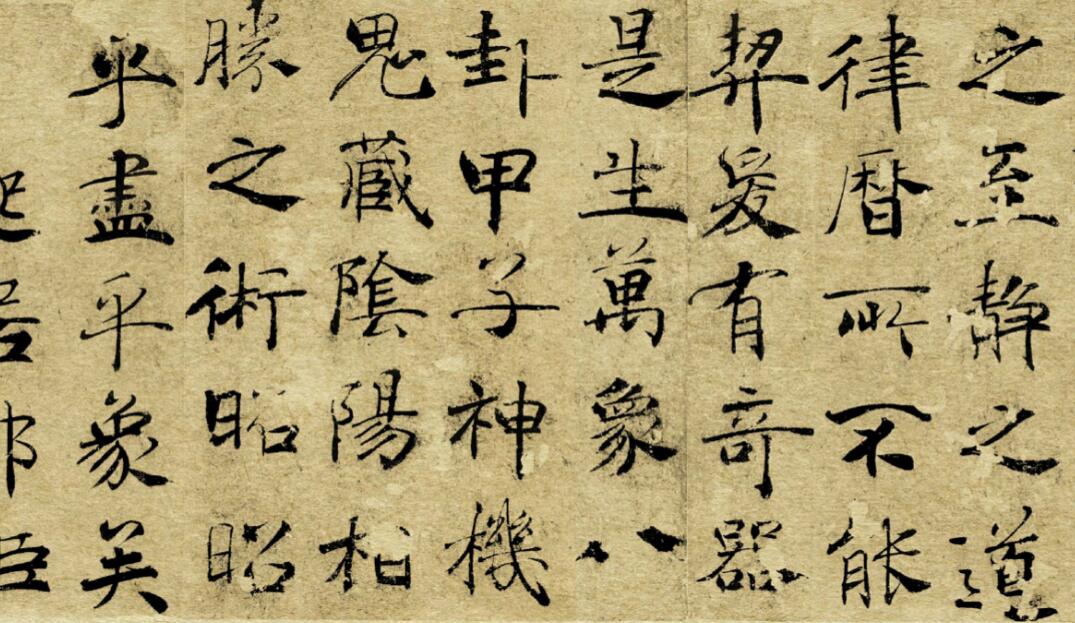 之至静之道
律曆所不能
契爰有奇器
是生萬象八
卦甲子神機
鬼藏陰陽相
勝之術昭昭
乎盡乎象矣